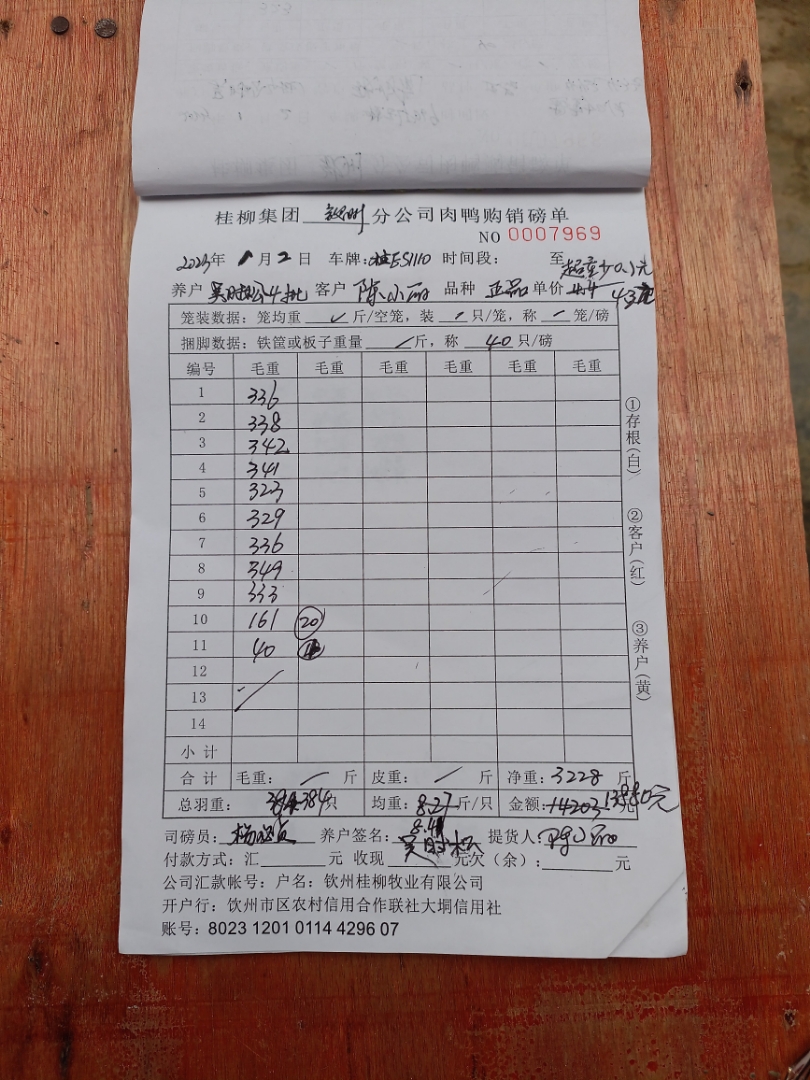 桂柳集团 钦州 分公司肉鸭购销磅单
NO 0007969
2023年 1月2日 车牌:桂ES1110 时间段: 至
超重少0.1元
养户 吴时松4批 客户 陈小丽 品种 正品 单价 4.4 4.3元
笼装数据:笼均重 / 斤/空笼,装 / 只/笼,称 / 笼/磅
捆脚数据:铁筐或板子重量 / 斤,称 40 只/磅
编号 毛重 毛重 毛重 毛重 毛重 毛重
1 336
2 338
3 342
4 341
5 323
6 329
7 336
8 349
9 333
10 161 20
11 40
12
13
14
小计
合计 毛重: / 斤 皮重: / 斤 净重:3228 斤
总羽重: 384只 均重:8.27斤/只 金额:14203 13880元
8.41
司磅员: 养户签名:吴时松 提货人:陈小丽
付款方式:汇 元 收现 元欠(余): 元
公司汇款帐号:户名:钦州桂柳牧业有限公司
开户行:饮州市区农村信用合作联社大垌信用社
账号:8023 1201 0114 4296 07
①存根(白)
②客户(红)
③养户(黄)